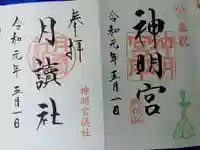 奉拝
神明宮
令和元年五月一日
奉拝
月讀社
令和元年五月一日
神明宮摂社